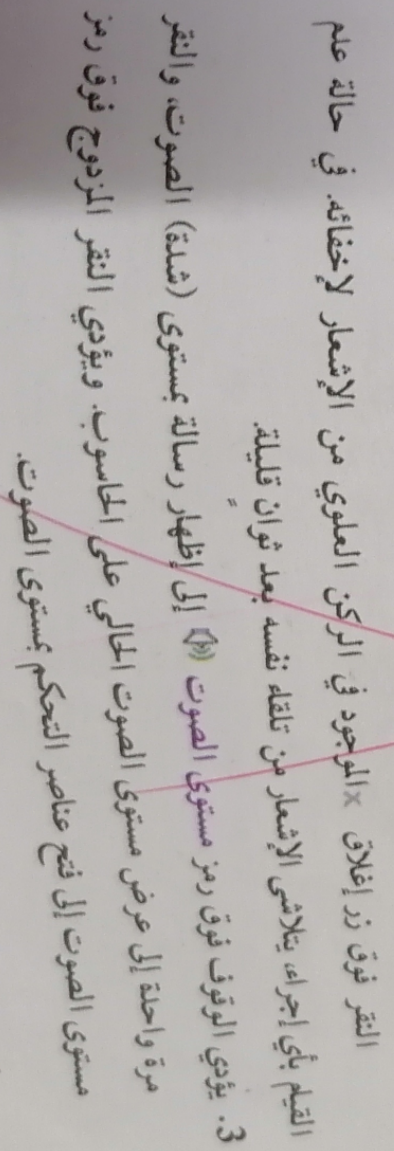 النقر فوق زر إغلاق × الموجود في الركن العلوي من الإشعار لإخفائه. في حالة علم
القيام بأي إجراء، يتلاشى الإشعار من تلقاء نفسه بعد ثوانٍ قليلة.
3. يؤدي الوقوف فوق رمز مستوى الصوت إلى إظهار رسالة بمستوى (شدة) الصوت، والنقر
مرة واحدة إلى عرض مستوى الصوت الحالي على الحاسوب. ويؤدي النقر المزدوج فوق رمز
مستوى الصوت إلى فتح عناصر التحكم بمستوى الصوت.